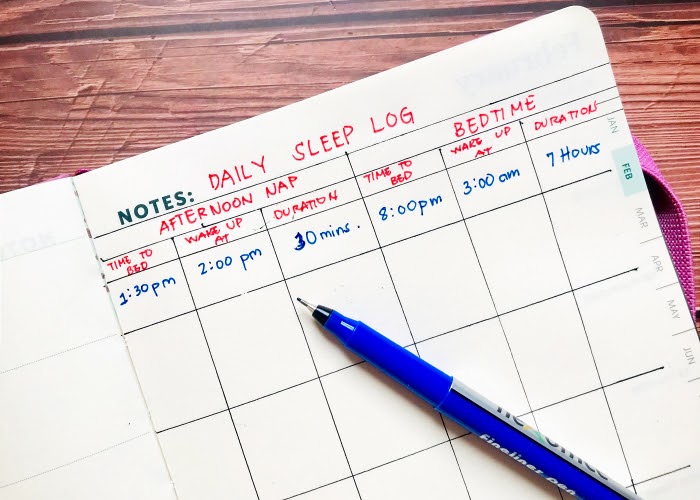 DAILY SLEEP LOG
NOTES:
AFTERNOON NAP
BEDTIME
TIME TO BED
WAKE UP AT
DURATION
TIME TO BED
WAKE UP AT
DURATION
1:30pm
2:00 pm
30mins.
8:00pm
3:00am
7 HOURS
JAN
FEB
MAR
APR
MAY
JUN
fineliner pen